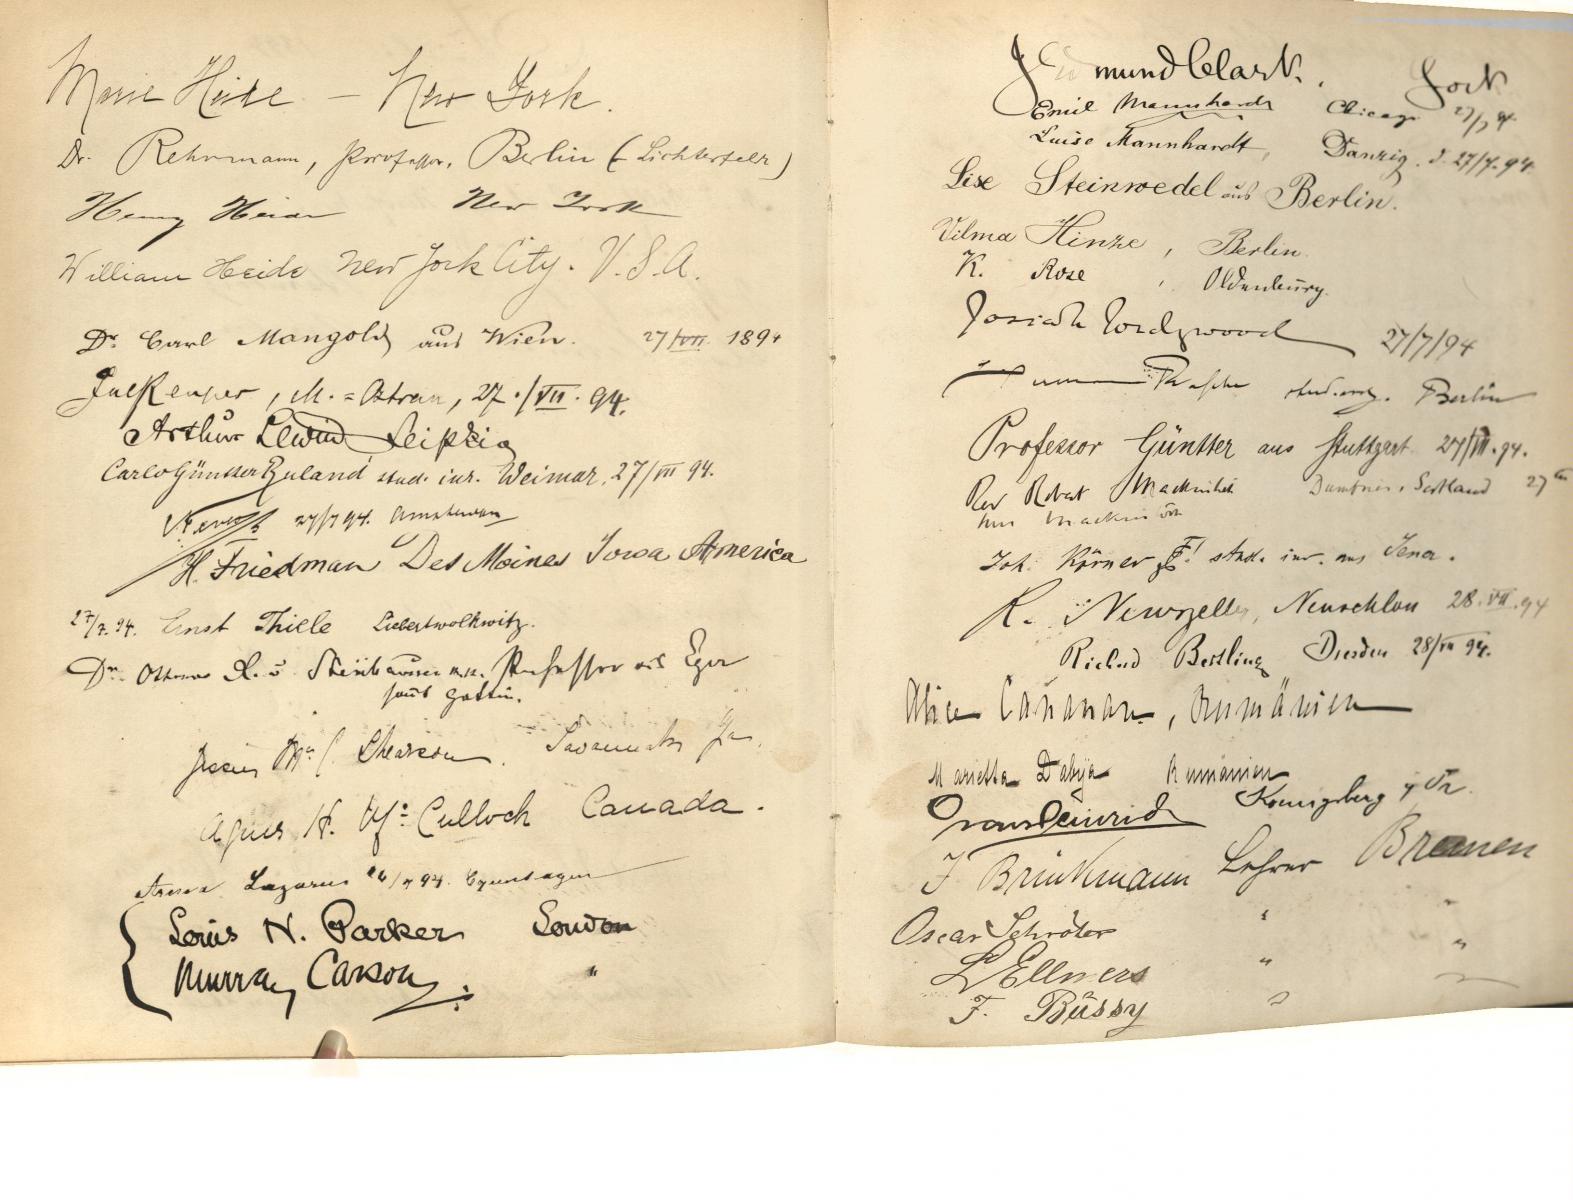 Marie Heide — New York.
Dr. Rehrmann, Professor, Berlin (-Lichterfelde)
Henry Heide New York
William Heide New York City. U.S.A.
Dr. Carl Mangold aus Wien. 27/VII. 1894
M.=Ostrau, 27./VII. 94.
Arthur Lewin Leipzig
Carlo Günther Ruland stud. iur. Weimar, 27/VII 94.
27/7 94. Amsterdam
H. Friedman Des Moines Iowa America
27/7. 94. Ernst Thiele Liebertwolkwitz.
Dr. Professor aus Eger
samt Gattin.
Agnes H. Mc Culloch Canada.
Lazarus 94.
Louis N. Parker London
Murray Carson "
J Edmund Clark. York
Emil Mannhardt Chicago 27/7 94
Luise Mannhardt, Danzig. d. 27/7. 94.
Lise Steinwedel aus Berlin.
Vilma Hinze, Berlin.
K. Rose, Oldenburg.
Josiah Wedgwood 27/7/94
Berlin
Professor Güntter aus Stuttgart 27/VII. 94.
Rev Robert Mackintosh Dumfries, Scotland 27
Mrs Mackintosh
Joh. Körner stud. iur. aus Jena.
K. 28. VII. 94
Richard Bertling Dresden 28/VII 94.
Alice Cananau, Rumänien
Marietta Dabija Rumänien
Franz Heinrich Koenigsberg i/Pr.
J Brinkmann Lehrer Bremen
Oscar Schröter " "
L Ellmers " "
F. Büssy